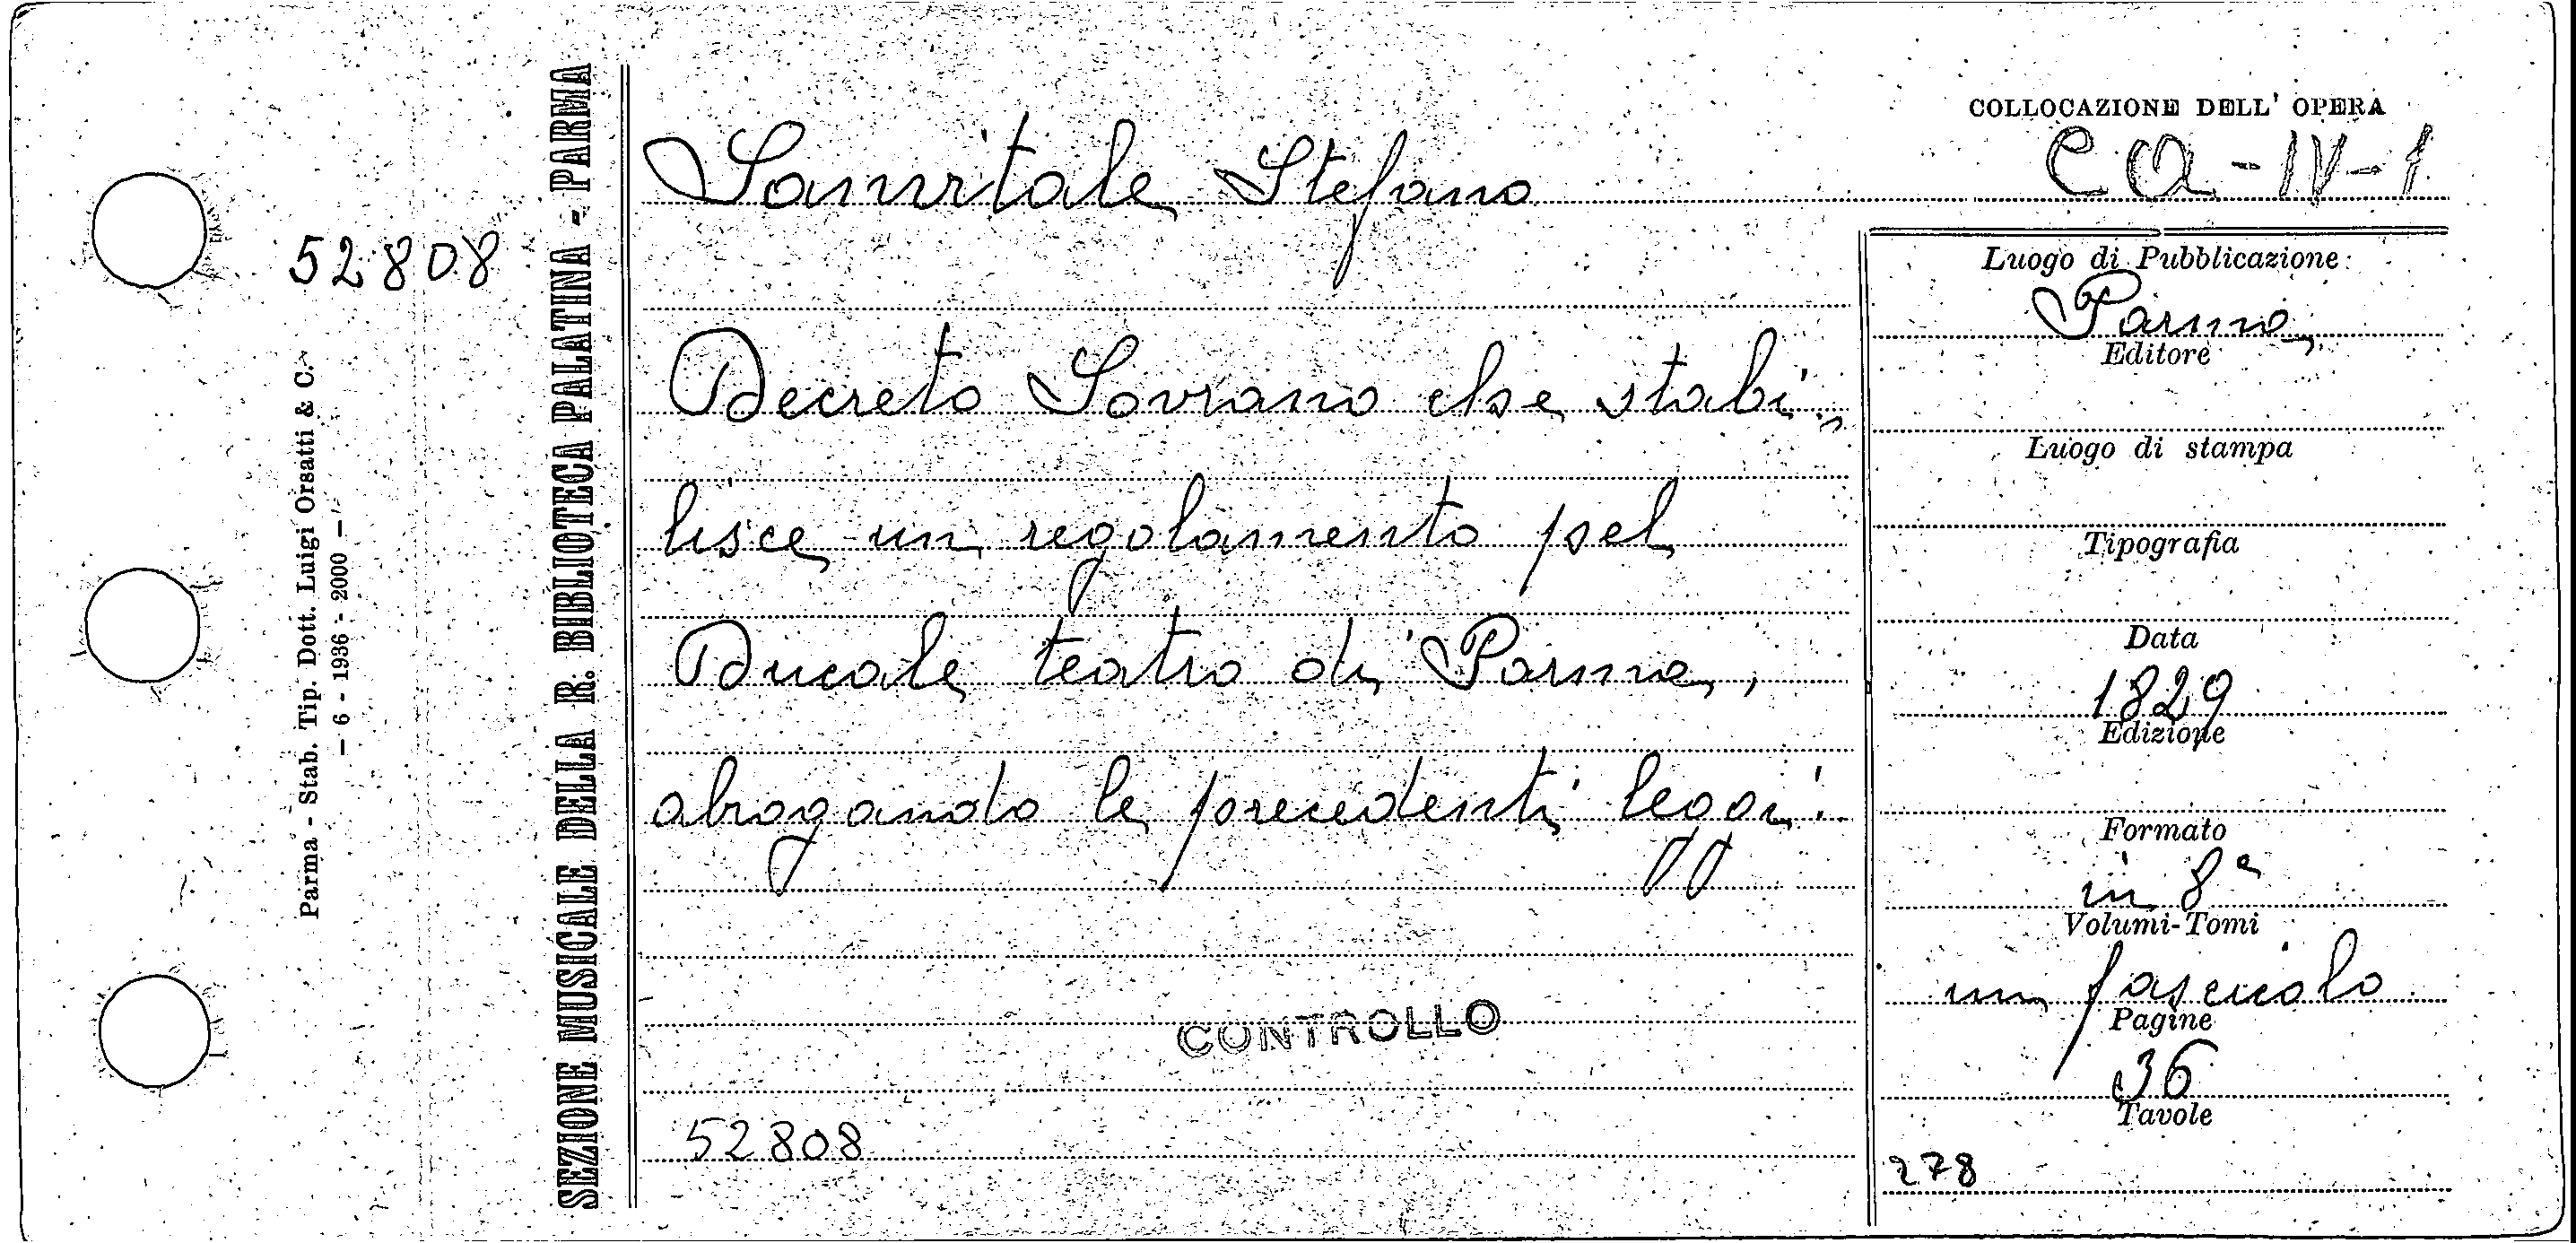 COLLOCAZIONE DELL' OPERA
CQ-IV-1
Sanvitale Stefano
52808
Decreto Sovrano che stabi-
lisce un regolamento pel
Ducale teatro di Parma,
abrogando le precedenti leggi.
CONTROLLO
52808
Luogo di Pubblicazione:
Parma
Editore
Luogo di stampa
Tipografia
Data
1829
Edizione
Formato
in 8°
Volumi-Tomi
un fascicolo
Pagine
36
Tavole
278
SEZIONE MUSICALE DELLA R. BIBLIOTECA PALATINA - PARMA
Parma - Stab. Tip. Dott. Luigi Orsatti & C.
- 6 - 1936 - 2000 -